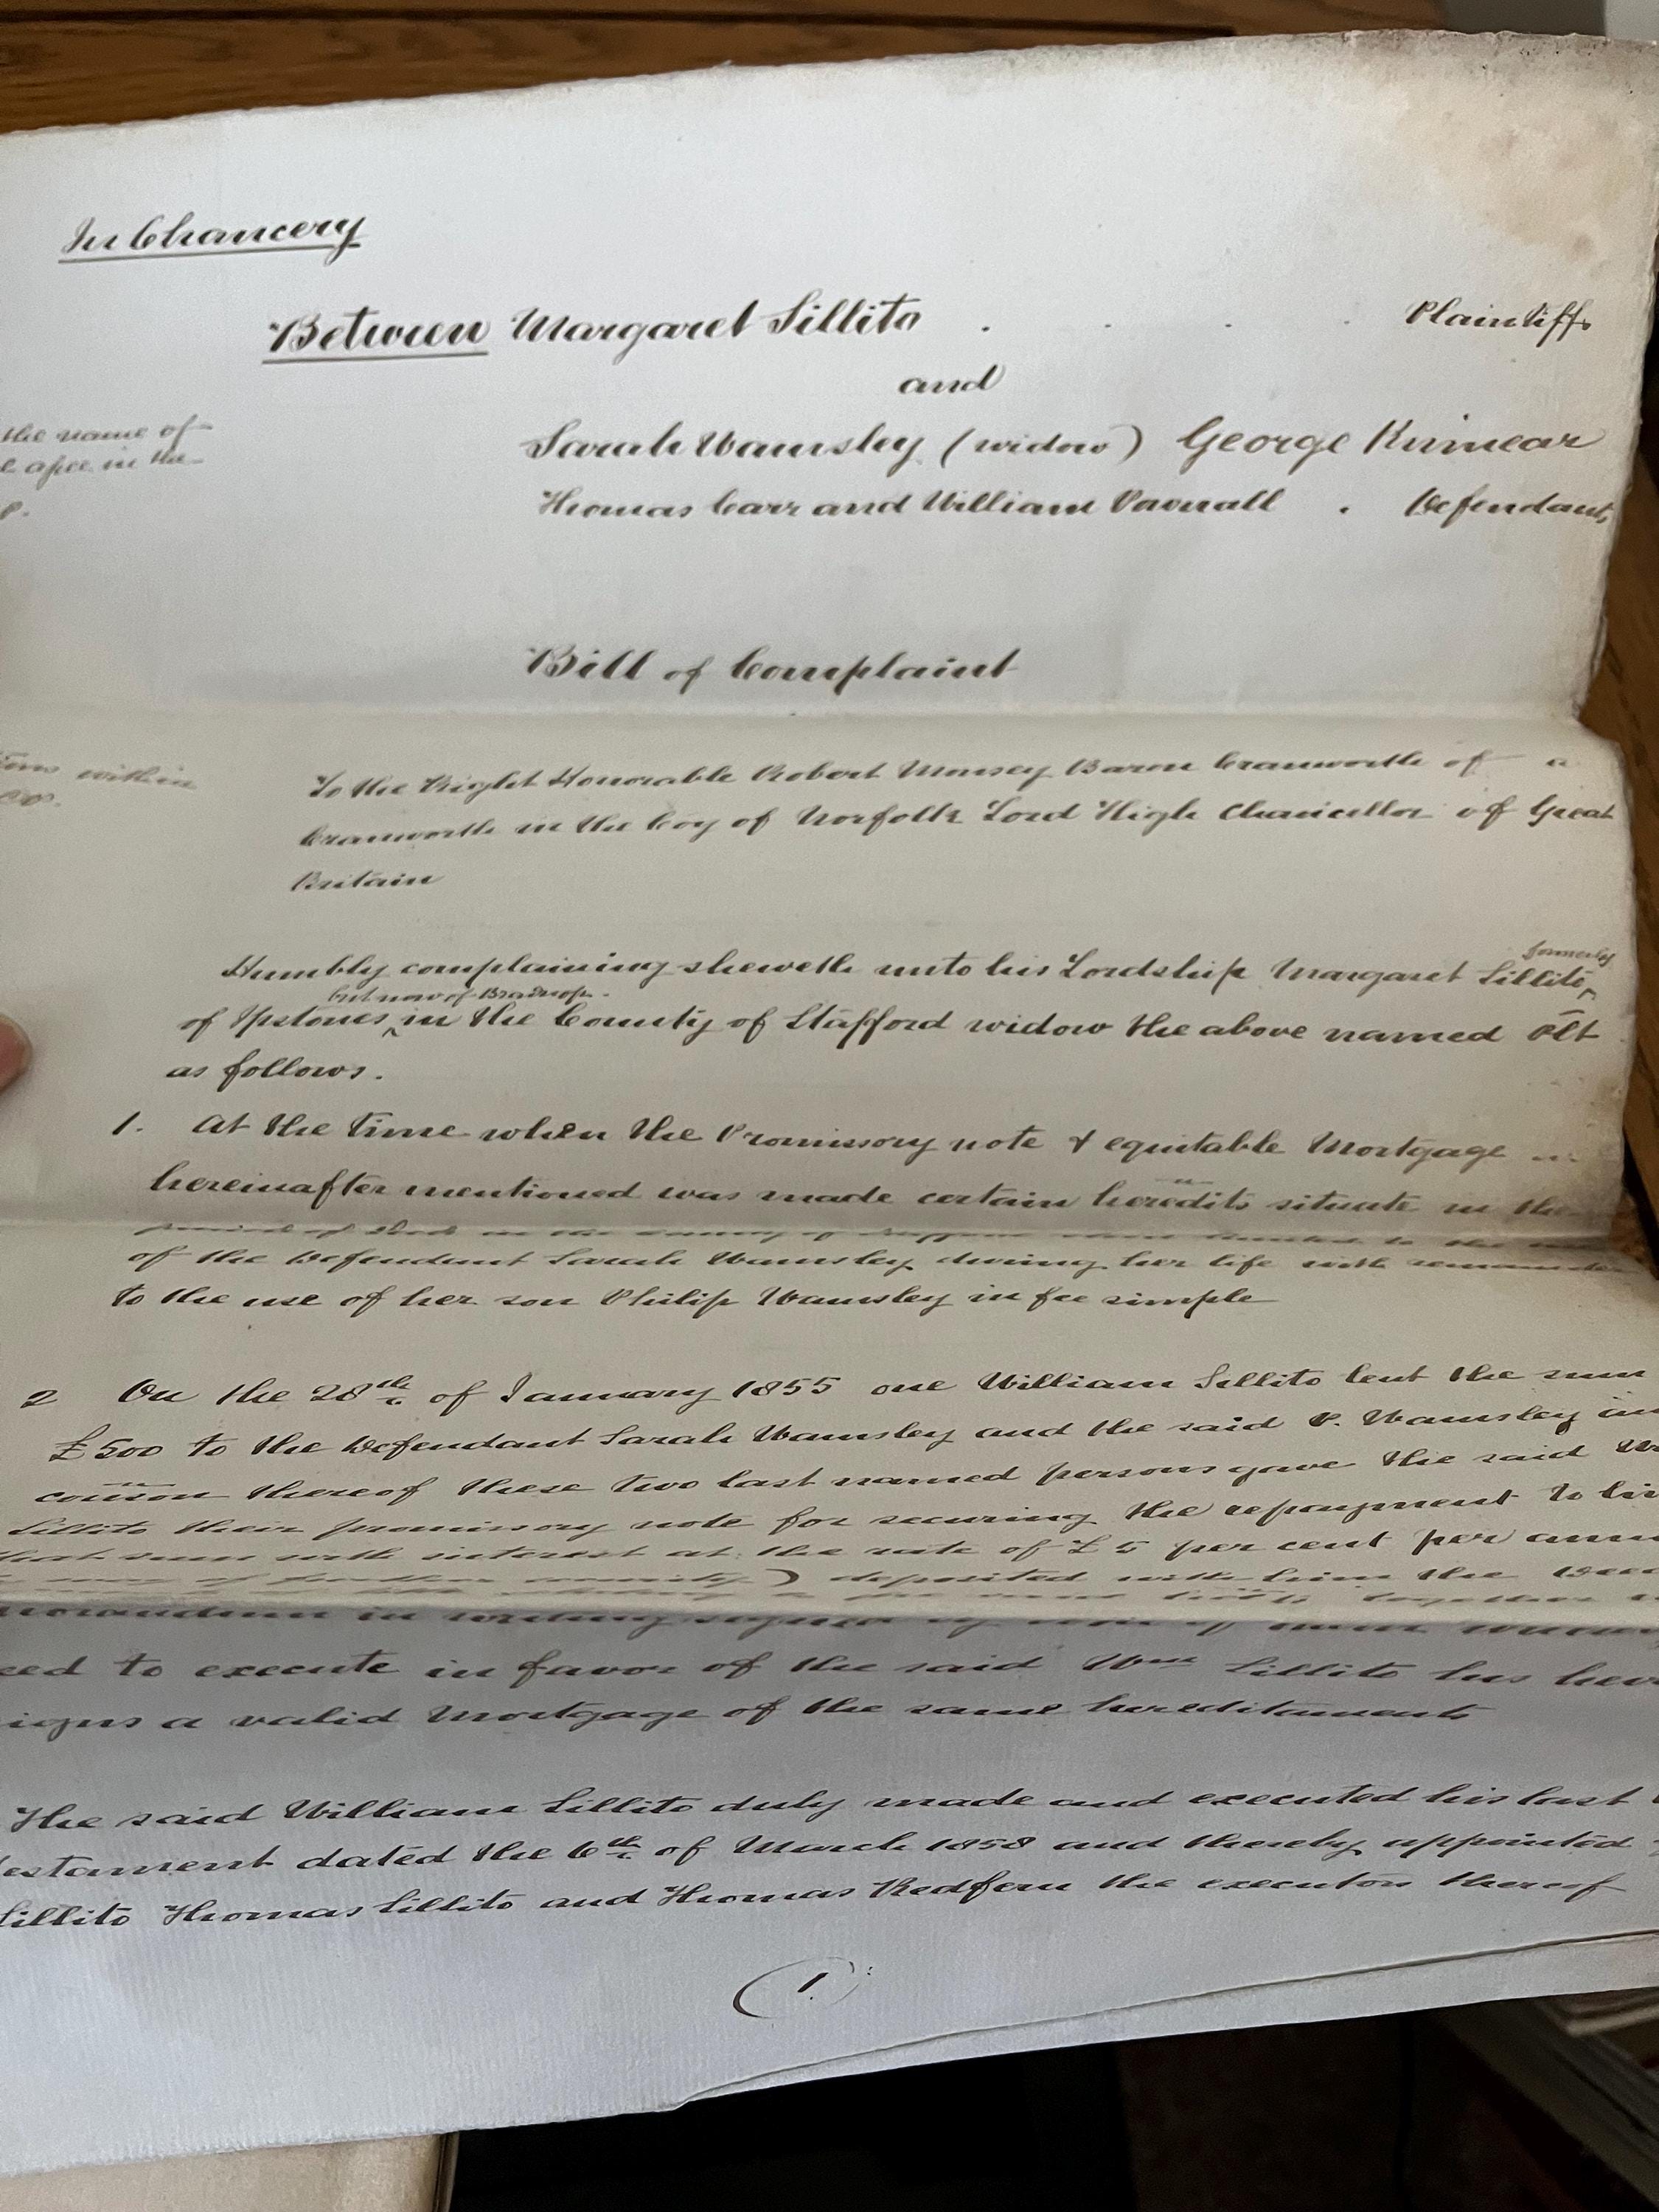 In Chancery
Between Margaret Sillito . . . . Plaintiff
and
the name of
Sarah Wamsley (widow) George Kinnear
in the
Thomas Carr and William Pownall . Defendants
Bill of Complaint
within
To the Right Honorable Robert Monsey Baron Cranworth of a
Cranworth in the Coy of Norfolk Lord High Chancellor of Great
Britain
formerly
Humbly complaining sheweth unto his Lordship Margaret Sillito
but now of Bradnop
of Ipstones in the County of Stafford widow the above named Plt
as follows.
1. At the time when the Promissory note & equitable Mortgage
hereinafter mentioned was made certain heredits situate in the
of the Defendant Sarah Wamsley during her life with remainder
to the use of her son Philip Wamsley in fee simple
2 On the 28th of January 1855 one William Sillito lent the sum
£500 to the Defendant Sarah Wamsley and the said P. Wamsley in
conson thereof these two last named persons gave the said Wm
Sillito their promissory note for securing the repayment to
that sum with interest at the rate of £5 per cent per
) deposited with him the
together
in writing signed
to execute in favor of the said Wm Sillito his
a valid Mortgage of the same hereditaments
The said William Sillito duly made and executed his last
estament dated the 6th of March 1858 and thereby appointed
Sillito Thomas Sillito and Thomas Redfern the executors thereof
(1)